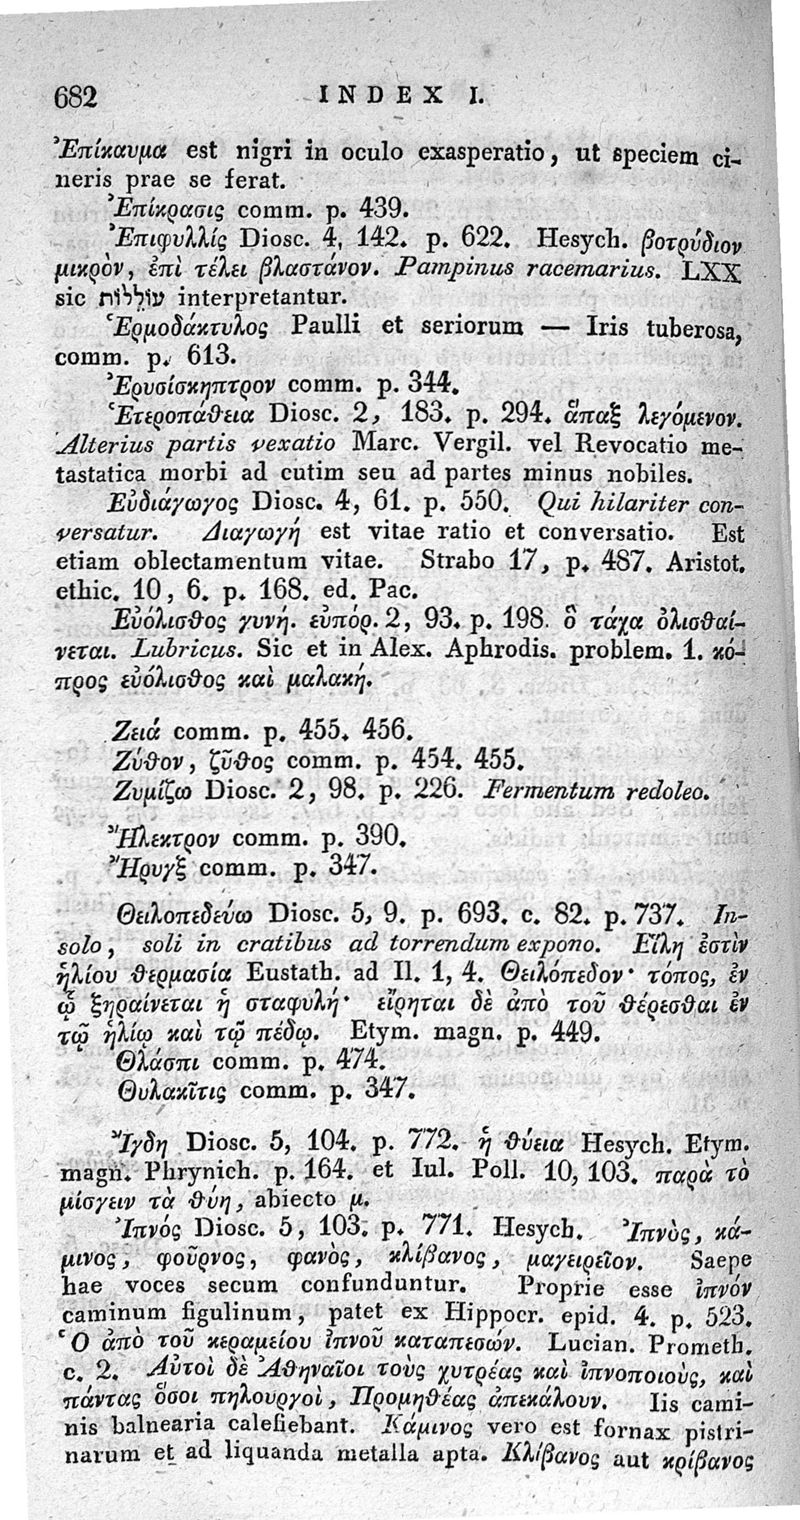 682 INDEX I.
Ἐπίκαυμα est nigri in oculo exasperatio, ut speciem ci-
neris prae se ferat.
Ἐπίκρασις comm. p. 439.
Ἐπιφυλλίς Diosc. 4, 142. p. 622. Hesych. βοτρύδιον
μικρὸν, ἐπὶ τέλει βλαστάνον. Pampinus racemarius. LXX
sic עוֹלֵלוֹת interpretantur.
Ἑρμοδάκτυλος Paulli et seriorum — Iris tuberosa,
comm. p. 613.
Ἐρυσίσκηπτρον comm. p. 344.
Ἑτεροπάθεια Diosc. 2, 183. p. 294. ἅπαξ λεγόμενον.
Alterius partis vexatio Marc. Vergil. vel Revocatio me-
tastatica morbi ad cutim seu ad partes minus nobiles.
Εὐδιάγωγος Diosc. 4, 61. p. 550. Qui hilariter con-
versatur. Διαγωγή est vitae ratio et conversatio. Est
etiam oblectamentum vitae. Strabo 17, p. 487. Aristot.
ethic. 10, 6. p. 168. ed. Pac.
Εὐόλισθος γυνή. εὐπόρ. 2, 93. p. 198. ὃ τάχα ὀλισθαί-
νεται. Lubricus. Sic et in Alex. Aphrodis. problem. 1. κό-
προς εὐόλισθος καὶ μαλακή.
Ζειά comm. p. 455. 456.
Ζύθον, ζῦθος comm. p. 454. 455.
Ζυμίζω Diosc. 2, 98. p. 226. Fermentum redoleo.
Ἤλεκτρον comm. p. 390.
Ἤρυγξ comm. p. 347.
Θειλοπεδεύω Diosc. 5, 9. p. 693. c. 82. p. 737. In-
solo, soli in cratibus ad torrendum expono. Εἵλη ἐστὶν
ἡλίου θερμασία Eustath. ad Il. 1, 4. Θειλόπεδον· τόπος, ἐν
ᾧ ξηραίνεται ἡ σταφυλή· εἴρηται δὲ ἀπὸ τοῦ θέρεσθαι ἐν
τῷ ἡλίῳ καὶ τῷ πέδῳ. Etym. magn. p. 449.
Θλάσπι comm. p. 474.
Θυλακῖτις comm. p. 347.
Ἴγδη Diosc. 5, 104. p. 772. ἡ θύεια Hesych. Etym.
magn. Phrynich. p. 164. et Iul. Poll. 10, 103. παρὰ τὸ
μίσγειν τὰ θύη, abiecto μ.
Ἰπνός Diosc. 5, 103. p. 771. Hesych. Ἰπνὸς, κά-
μινος, φοῦρνος, φανὸς, κλίβανος, μαγειρεῖον. Saepe
hae voces secum confunduntur. Proprie esse ἰπνόν
caminum figulinum, patet ex Hippocr. epid. 4. p. 523.
Ὁ ἀπὸ τοῦ κεραμείου ἰπνοῦ καταπεσών. Lucian. Prometh.
c. 2. Αὐτοὶ δὲ Ἀθηναῖοι τοὺς χυτρέας καὶ ἰπνοποιοὺς, καὶ
πάντας ὅσοι πηλουργοὶ, Προμηθέας ἀπεκάλουν. Iis cami-
nis balnearia calefiebant. Κάμινος vero est fornax pistri-
narum et ad liquanda metalla apta. Κλίβανος aut κρίβανος